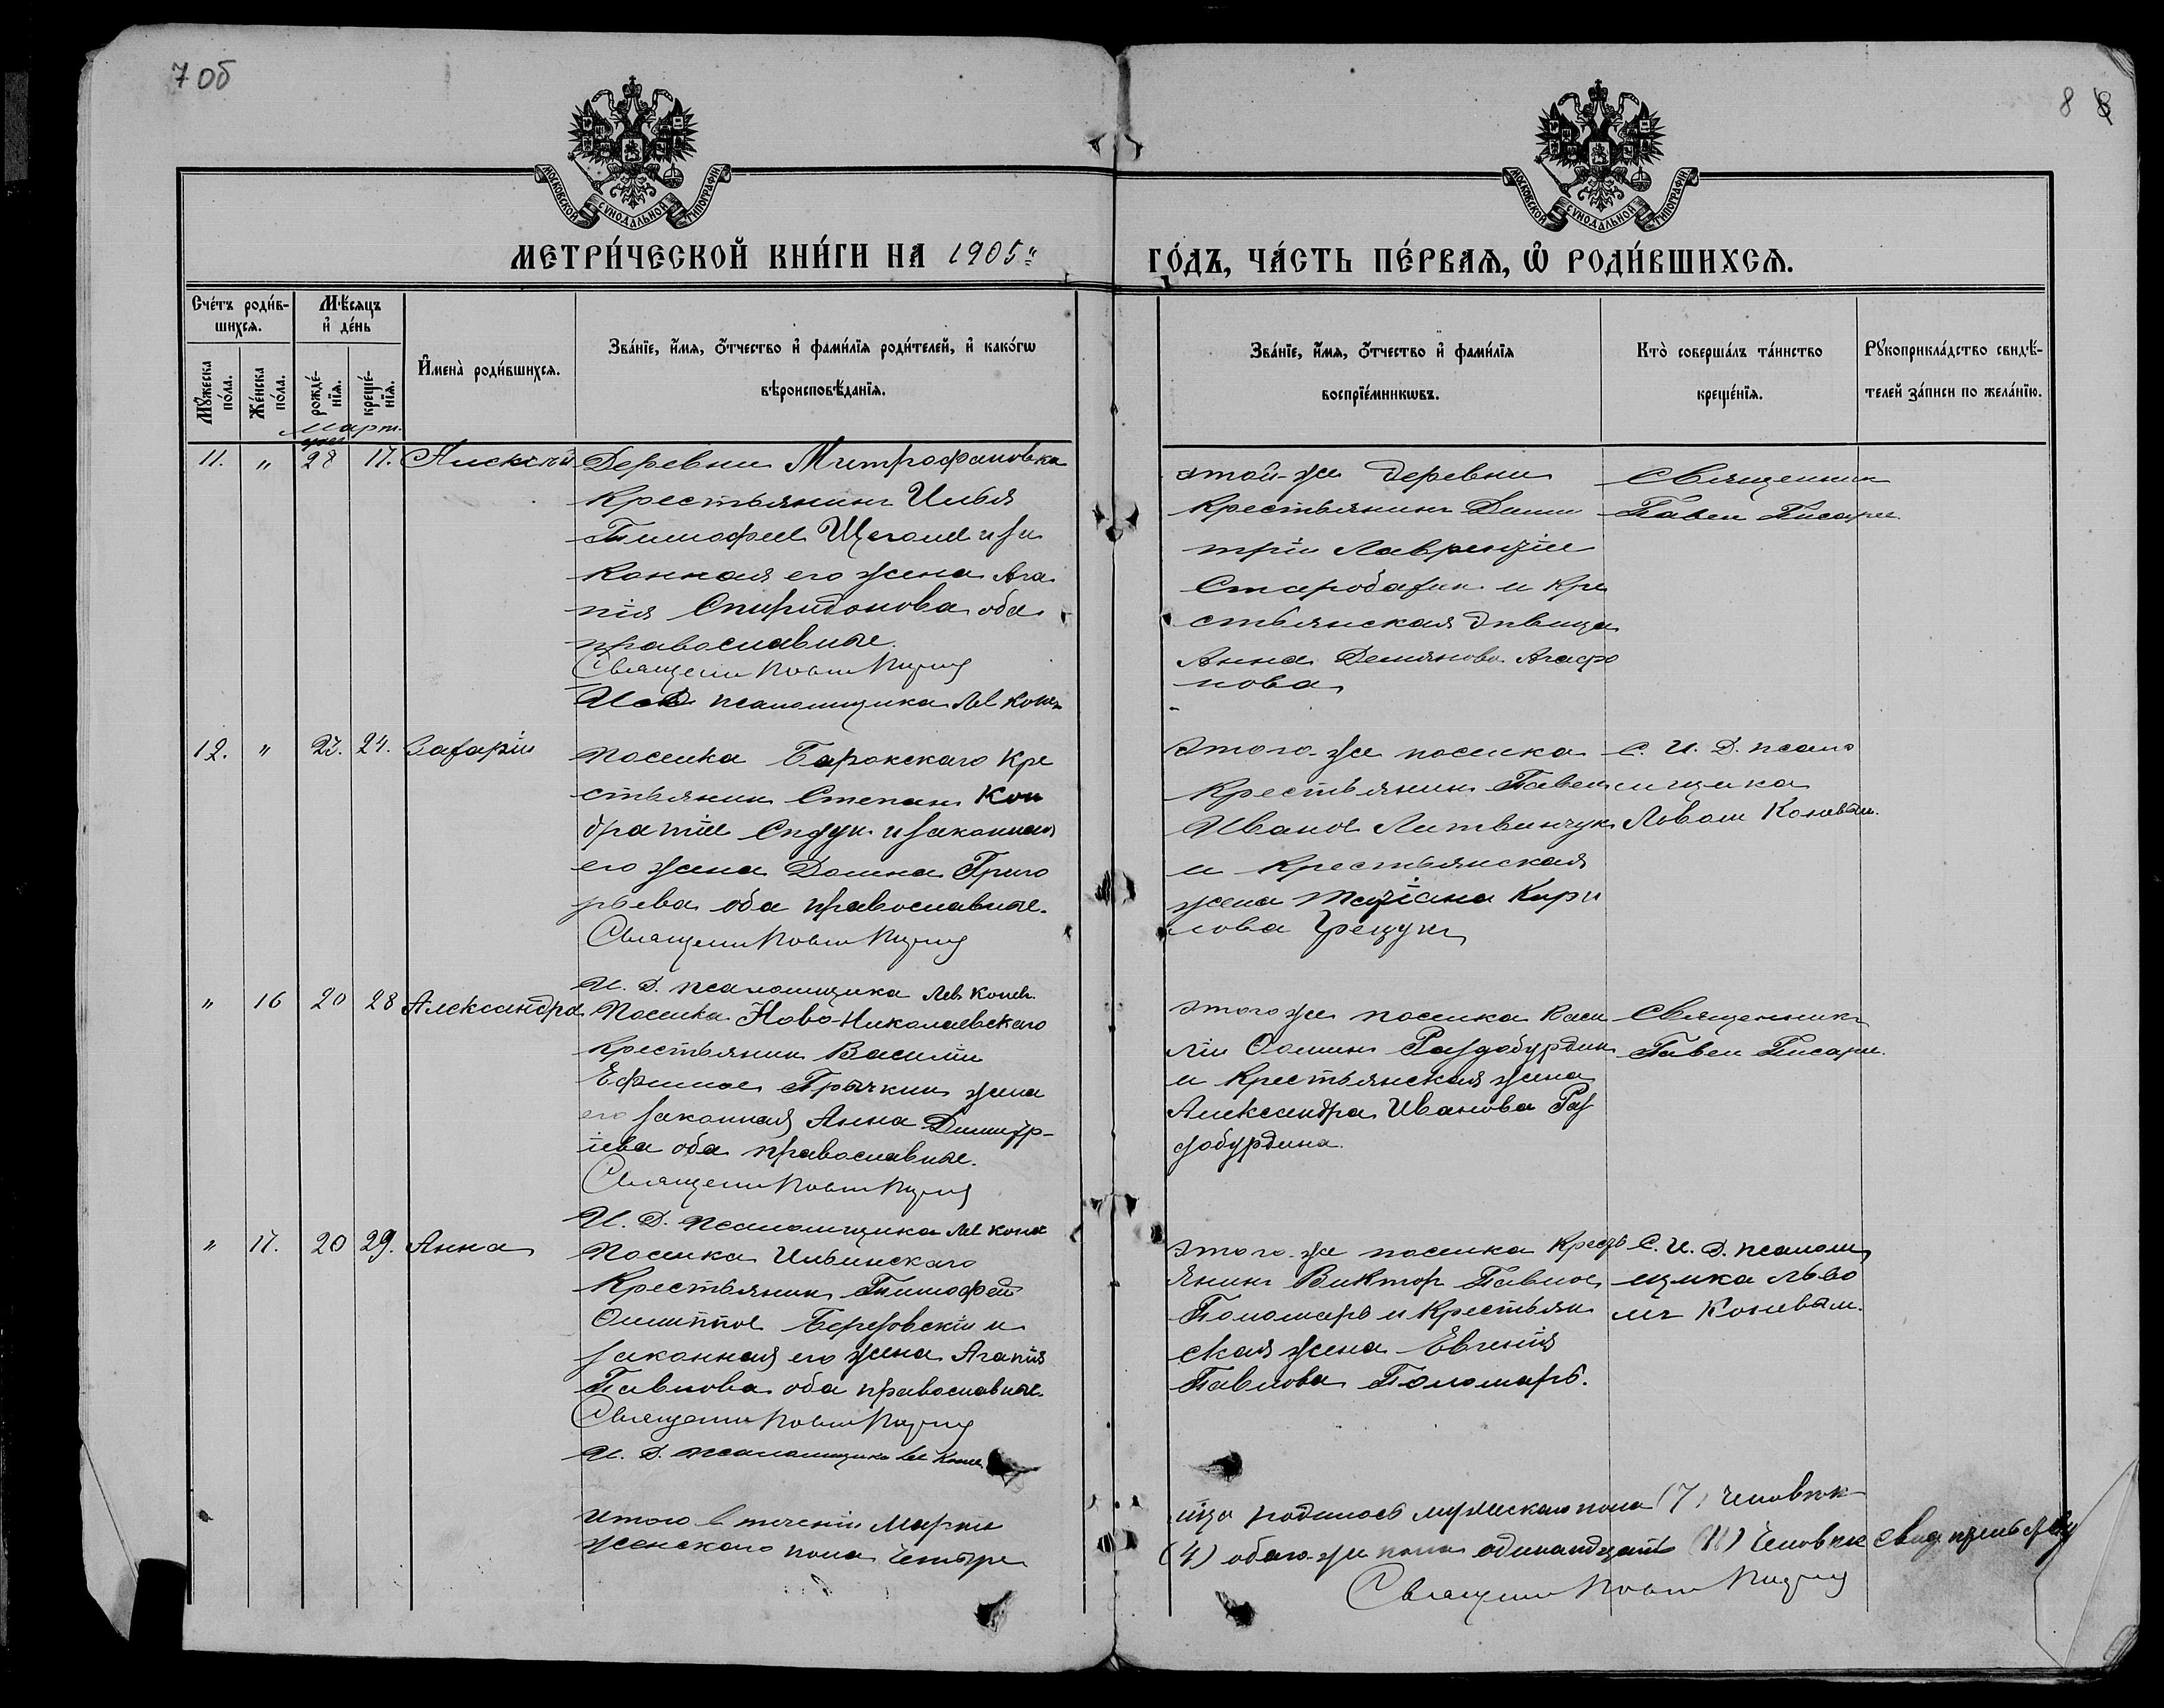 7 об
8 8
МОСКОВСКОЙ СѴНОДАЛЬНОЙ ТИПОГРАФІИ
МОСКОВСКОЙ СѴНОДАЛЬНОЙ ТИПОГРАФІИ
МЕТРИ́ЧЕСКОЙ КНИ́ГИ НА 1905
ГО́ДЪ, ЧА́СТЬ ПЕ́РВАѦ, Ѡ҆ РОДИ́ВШИХСѦ.
Сче́тъ роди́в-
шихсѧ.
Мꙋ́жеска по́ла.
Же́нска по́ла.
Мѣ́сѧцъ
и҆ де́нь
рожде́-
нїѧ.
креще́-
нїѧ.
И҆мена̀ роди́вшихсѧ.
Зва́нїе, и҆́мѧ, ѻ҆́тчество и҆ фами́лїѧ роди́телей, и҆ како́гѡ
вѣроисповѣ́данїѧ.
Зва́нїе, и҆́мѧ, ѻ҆́тчество и҆ фами́лїѧ
воспрїе́мникѡвъ.
Кто̀ соверша́лъ та́инство
креще́нїѧ.
Рꙋкоприкла́дство свидѣ́-
телей за́писи по жела́нїю.
Март.
11. " 28 17. Алексѣй
Деревни Митрофановка
Крестьянинъ Илья
Тимофеев Щеголев и за
конная его жена Ага
пія Спиридонова оба
православные.
Священник Павел Писарев
И. Д. псаломщика Лев Конев
этой-же деревни
Крестьянинъ Дими
трій Лаврентіев
и Кре
стьянская дѣвица
Анна Демянова Агафо
нова
Священник
Павел Писарев
12. " 23. 24. Захарій
Поселка Кре
стьянин Степан Кон
дратіев и законная
его жена Домна Григо
рьева оба православные.
Священник Павел Писарев
И. Д. псаломщика Лев Конев.
этого-же поселка
Крестьянин Павел
Иванов Литвинчук
и Крестьянская
жена Татіана Кири
лова Грецук
С. И. Д. псало
мщика
Львом Коневым.
" 16 20 28 Александра
Поселка Ново-Николаевскаго
Крестьянин Василій
Ефимов жена
его законная Анна Димитр-
іева оба православные.
Священник Павел Писарев
И. Д. Псаломщика Лев Конев
этого же поселка Васи
лій Фомин Раздобурдин
и Крестьянская жена
Александра Иванова Раз
добурдина.
Священник
Павел Писарев.
" 17. 20 29. Анна
Поселка Ильинскаго
Крестьянин Тимофей
Филиппов Березовскій и
законная его жена Агапія
Павлова оба православные.
Священник Павел Писарев
И. Д. псаломщика Лев Конев
этого-же поселка Кресть
янин Виктор Павлов
Пономарь и Крестьян
ская жена Евгенія
Павлова Пономарь.
С. И. Д. псалом
щика Льво
мъ Коневым.
Итого в теченіи Марта
женскаго пола четыре
мѣсяца родилось мужескаго пола (7) человѣк
(4) обоего-же пола одинандцать (11) человѣк
Священник Павел Писарев